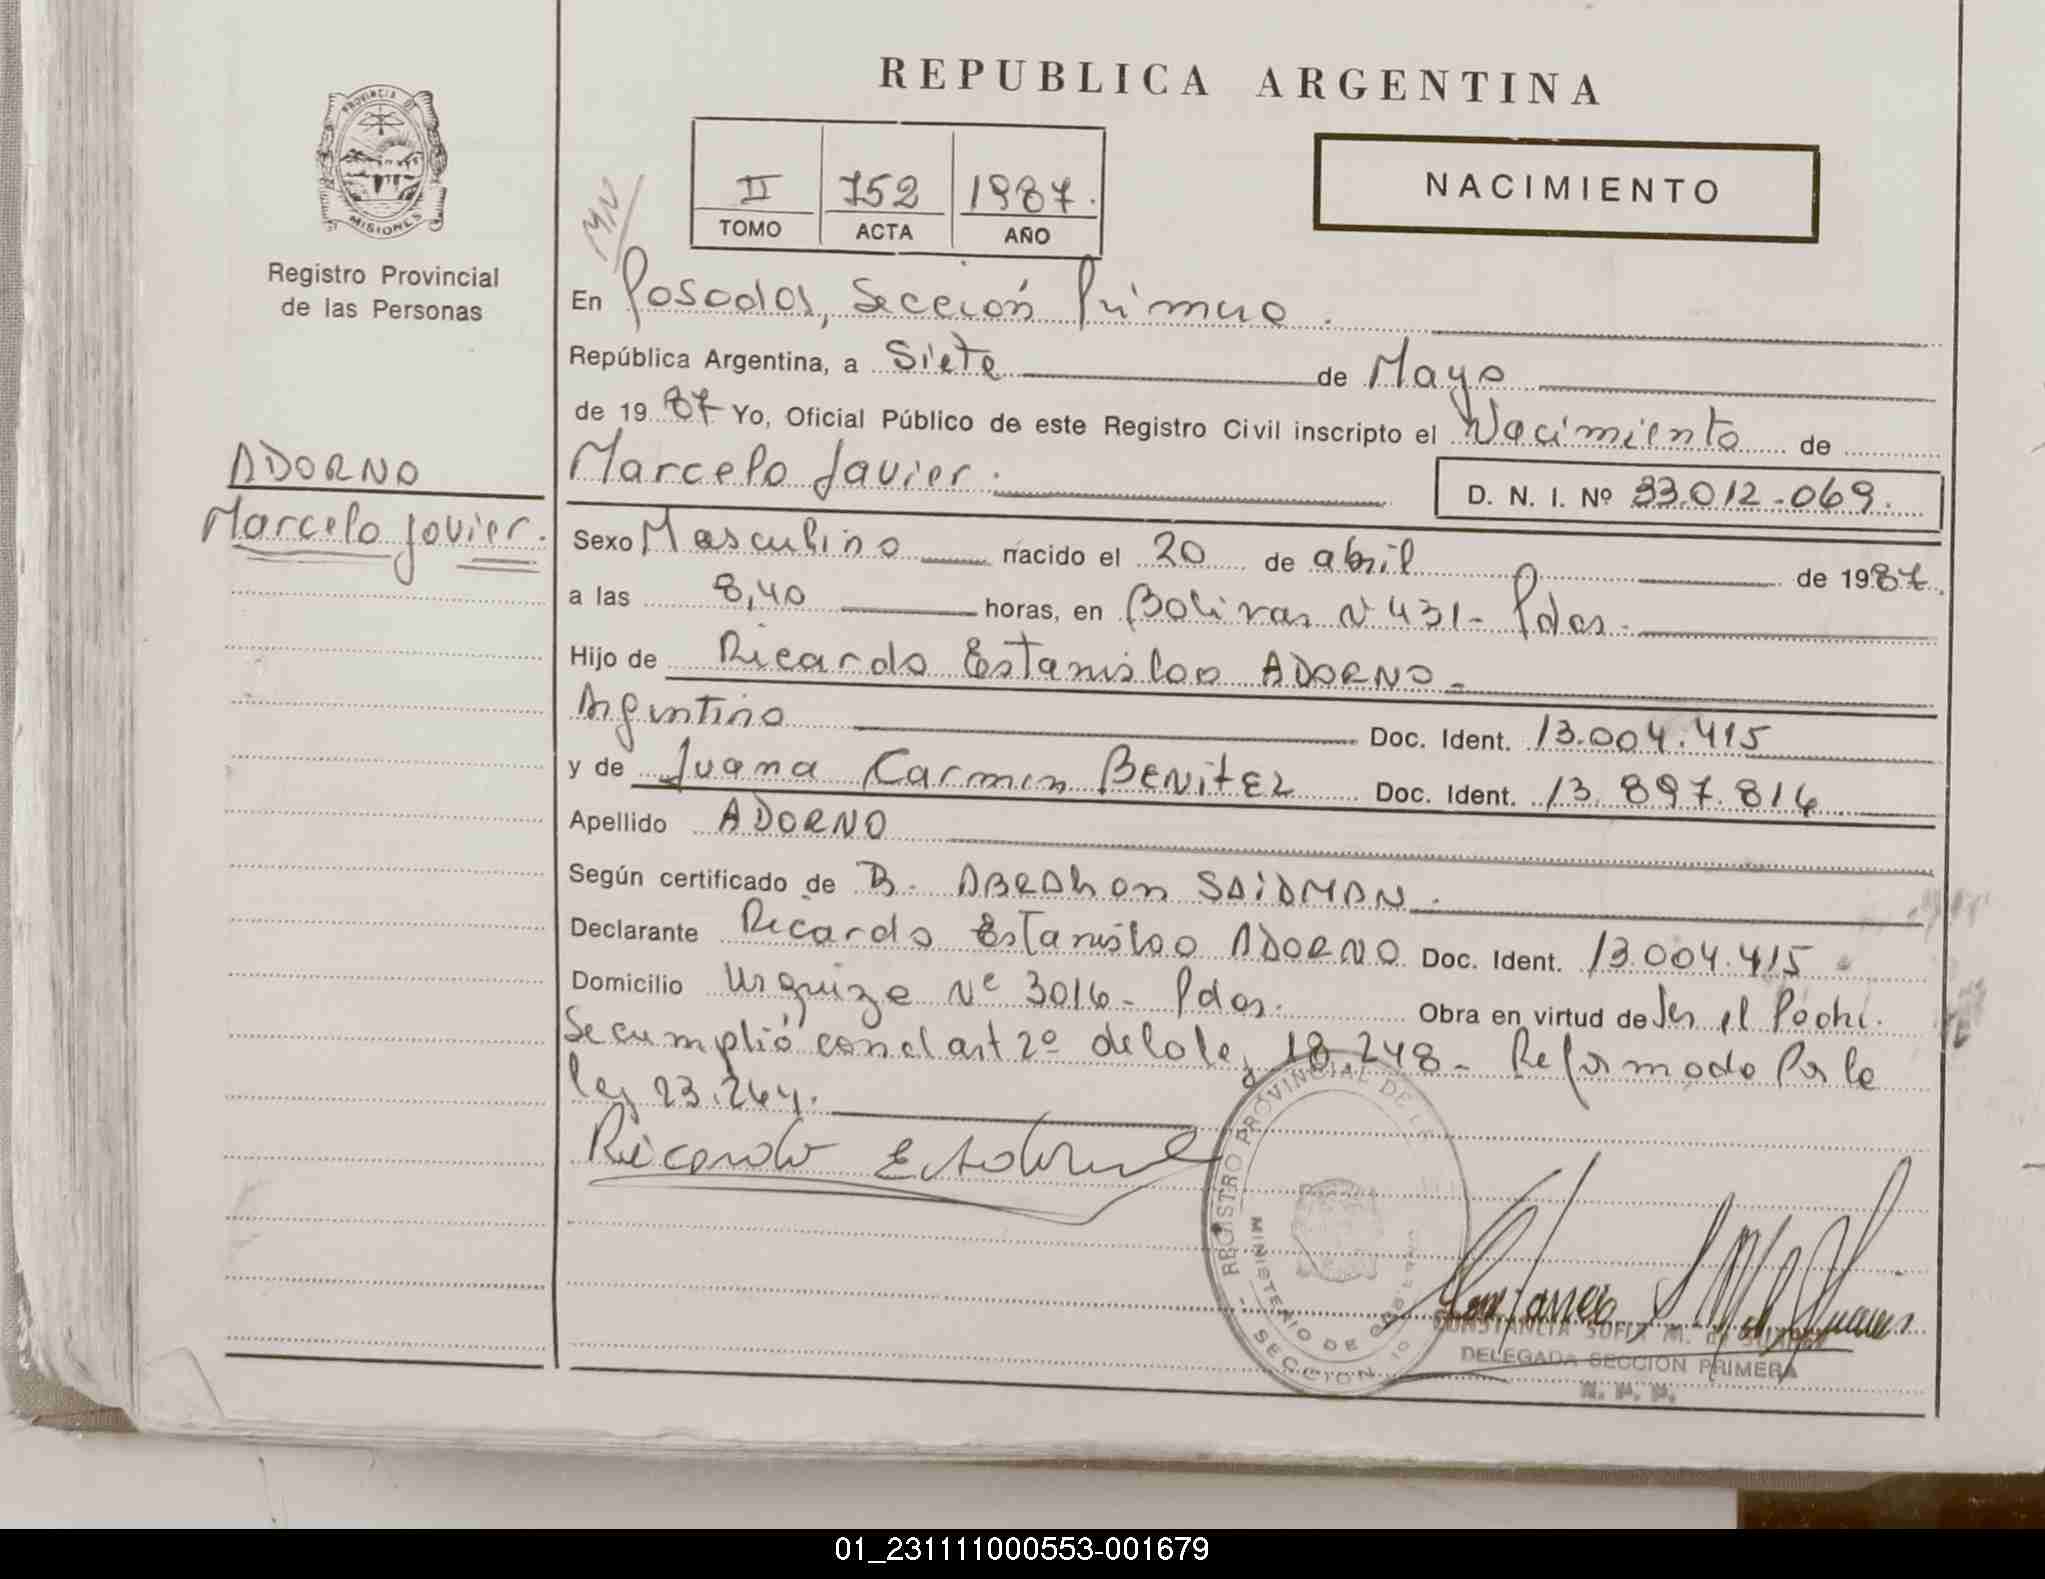 REPUBLICA ARGENTINA
PROVINCIA DE
MISIONES
Registro Provincial
de las Personas
II 752 1987.
TOMO ACTA AÑO
NACIMIENTO
En Posadas, Sección Primera.
República Argentina, a Siete de Mayo
de 1987 Yo, Oficial Público de este Registro Civil inscripto el Nacimiento de
ADORNO
Marcelo Javier.
Marcelo Javier.
D. N. I. Nº 33.012-069.
Sexo Masculino nacido el 20 de abril de 1987.
a las 8,40 horas, en Bolivar Nº 431- Pdas.
Hijo de Ricardo Estanislao ADORNO-
Argentino Doc. Ident. 13.004.415
y de Juana Carmen BENITEZ Doc. Ident. 13.897.816
Apellido ADORNO
Según certificado de ABRAham SAIDMAN.
Declarante Ricardo Estanislao ADORNO Doc. Ident. 13.004.415
Domicilio Urquiza Nº 3016- Pdas. Obra en virtud de Ser el Padre.
Se cumplió con el art 2º de la ley 18.248- Reformada Por la
ley 23.264.
Ricardo
REGISTRO PROVINCIAL DE
MINISTERIO DE GOBIERNO
SECCION
CONSTANCIA SOFIA M. de SUAREZ
DELEGADA SECCION PRIMERA
01_231111000553-001679